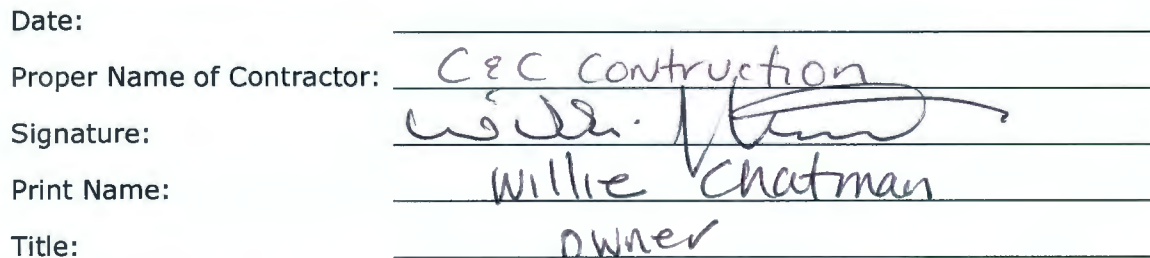 Date:
Proper Name of Contractor: C & C Contruction
Signature: Willie
Print Name: Willie Chatman
Title: owner